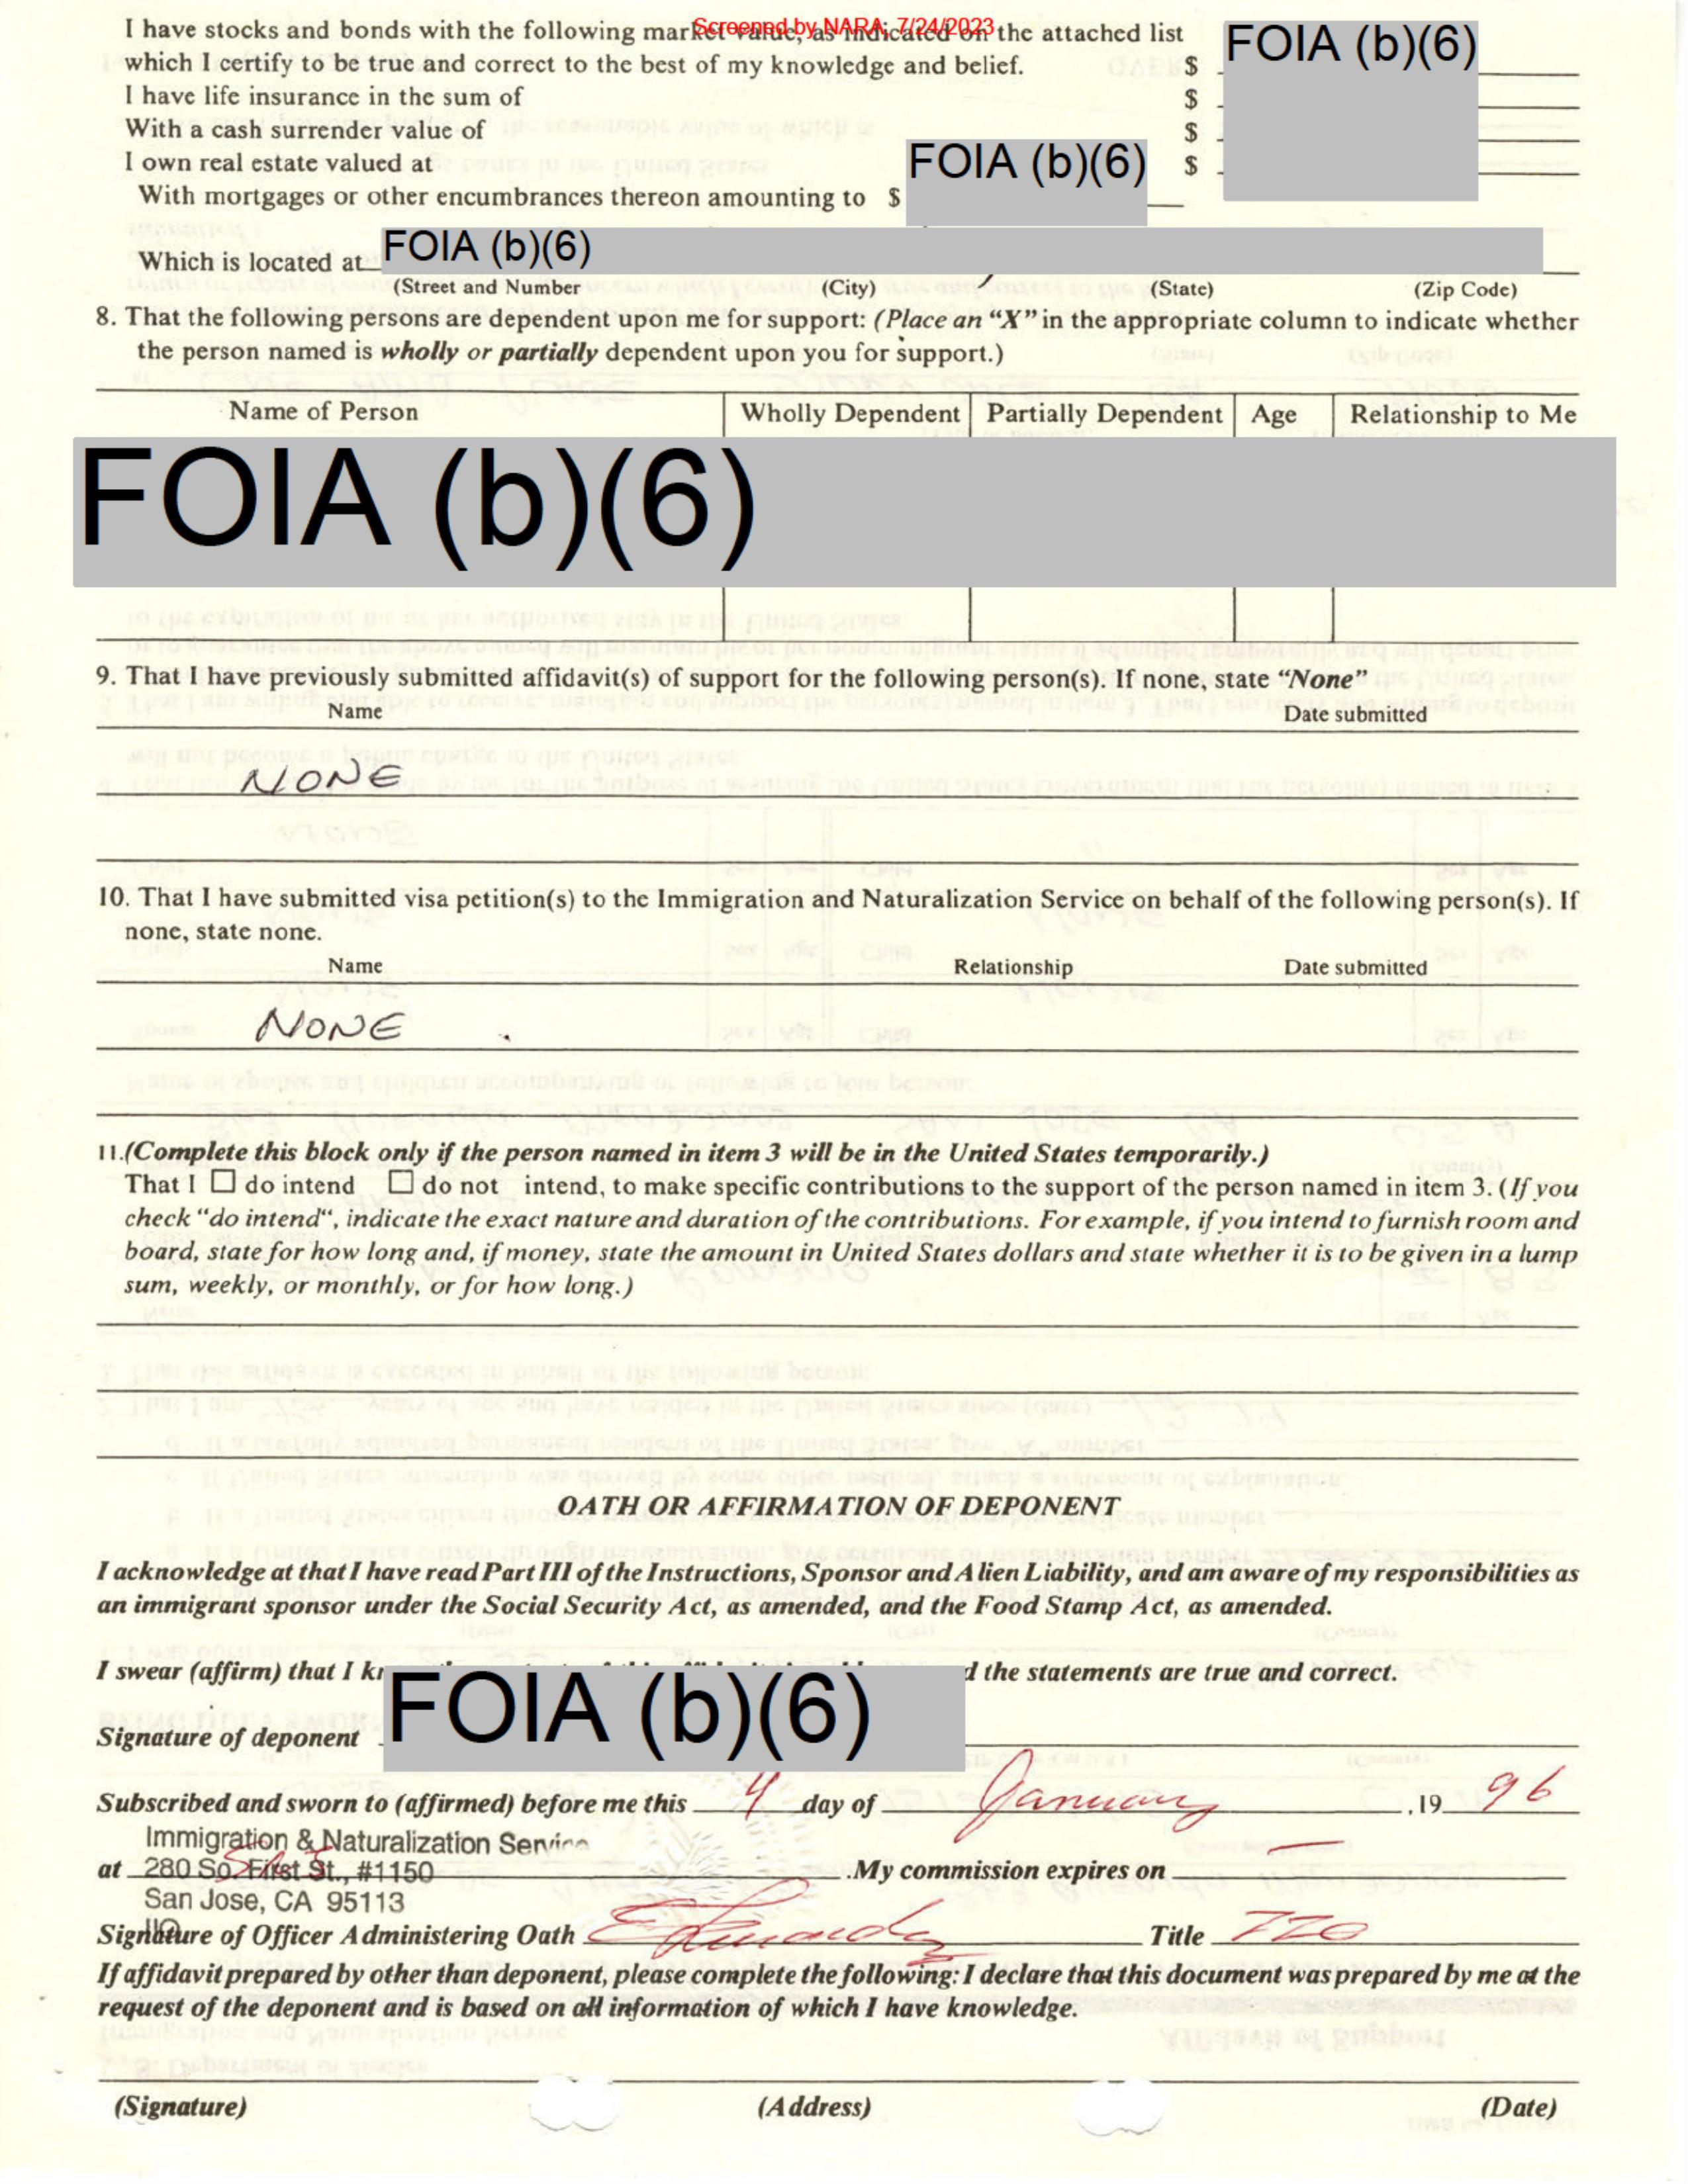 Screened by NARA, 7/24/2023
I have stocks and bonds with the following market value, as indicated on the attached list
which I certify to be true and correct to the best of my knowledge and belief. $ FOIA (b)(6)
I have life insurance in the sum of $
With a cash surrender value of $
I own real estate valued at $
With mortgages or other encumbrances thereon amounting to $ FOIA (b)(6)
Which is located at FOIA (b)(6)
(Street and Number (City) (State) (Zip Code)
8. That the following persons are dependent upon me for support: (Place an “X” in the appropriate column to indicate whether
the person named is wholly or partially dependent upon you for support.)
Name of Person Wholly Dependent Partially Dependent Age Relationship to Me
FOIA (b)(6)
9. That I have previously submitted affidavit(s) of support for the following person(s). If none, state “None”
Name Date submitted
NONE
10. That I have submitted visa petition(s) to the Immigration and Naturalization Service on behalf of the following person(s). If
none, state none.
Name Relationship Date submitted
NONE
11.(Complete this block only if the person named in item 3 will be in the United States temporarily.)
That I ☐ do intend ☐ do not intend, to make specific contributions to the support of the person named in item 3. (If you
check “do intend“, indicate the exact nature and duration of the contributions. For example, if you intend to furnish room and
board, state for how long and, if money, state the amount in United States dollars and state whether it is to be given in a lump
sum, weekly, or monthly, or for how long.)
OATH OR AFFIRMATION OF DEPONENT
I acknowledge at that I have read Part III of the Instructions, Sponsor and Alien Liability, and am aware of my responsibilities as
an immigrant sponsor under the Social Security Act, as amended, and the Food Stamp Act, as amended.
I swear (affirm) that I the statements are true and correct.
Signature of deponent FOIA (b)(6)
Subscribed and sworn to (affirmed) before me this 4 day of January ,19 96
Immigration & Naturalization Service
at 280 So. First St., #1150 .My commission expires on —
San Jose, CA 95113
Signature of Officer Administering Oath Title
If affidavit prepared by other than deponent, please complete the following: I declare that this document was prepared by me at the
request of the deponent and is based on all information of which I have knowledge.
(Signature) (Address) (Date)